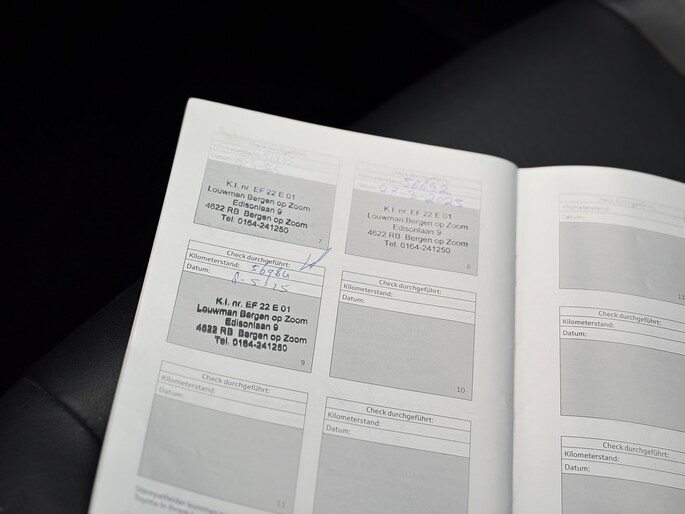 Check durchgeführt:
Kilometerstand:
Datum:
K.I. nr. EF 22 E 01
Louwman Bergen op Zoom
Edisonlaan 9
4622 RB Bergen op Zoom
Tel. 0164-241250
7
Check durchgeführt:
Kilometerstand: 56692
Datum: 2025
K.I. nr. EF 22 E 01
Louwman Bergen op Zoom
Edisonlaan 9
4622 RB Bergen op Zoom
Tel. 0164-241250
8
Check durchgeführt:
Kilometerstand: 56984
Datum: 8-5/25
K.I. nr. EF 22 E 01
Louwman Bergen op Zoom
Edisonlaan 9
4622 RB Bergen op Zoom
Tel. 0164-241250
9
Check durchgeführt:
Kilometerstand:
Datum:
10
Check durchgeführt:
Kilometerstand:
Datum:
11
Check durchgeführt:
Kilometerstand:
Datum:
Datum:
Check durchgeführt:
Kilometerstand:
Datum:
Check durchgeführt:
Kilometerstand:
Datum: